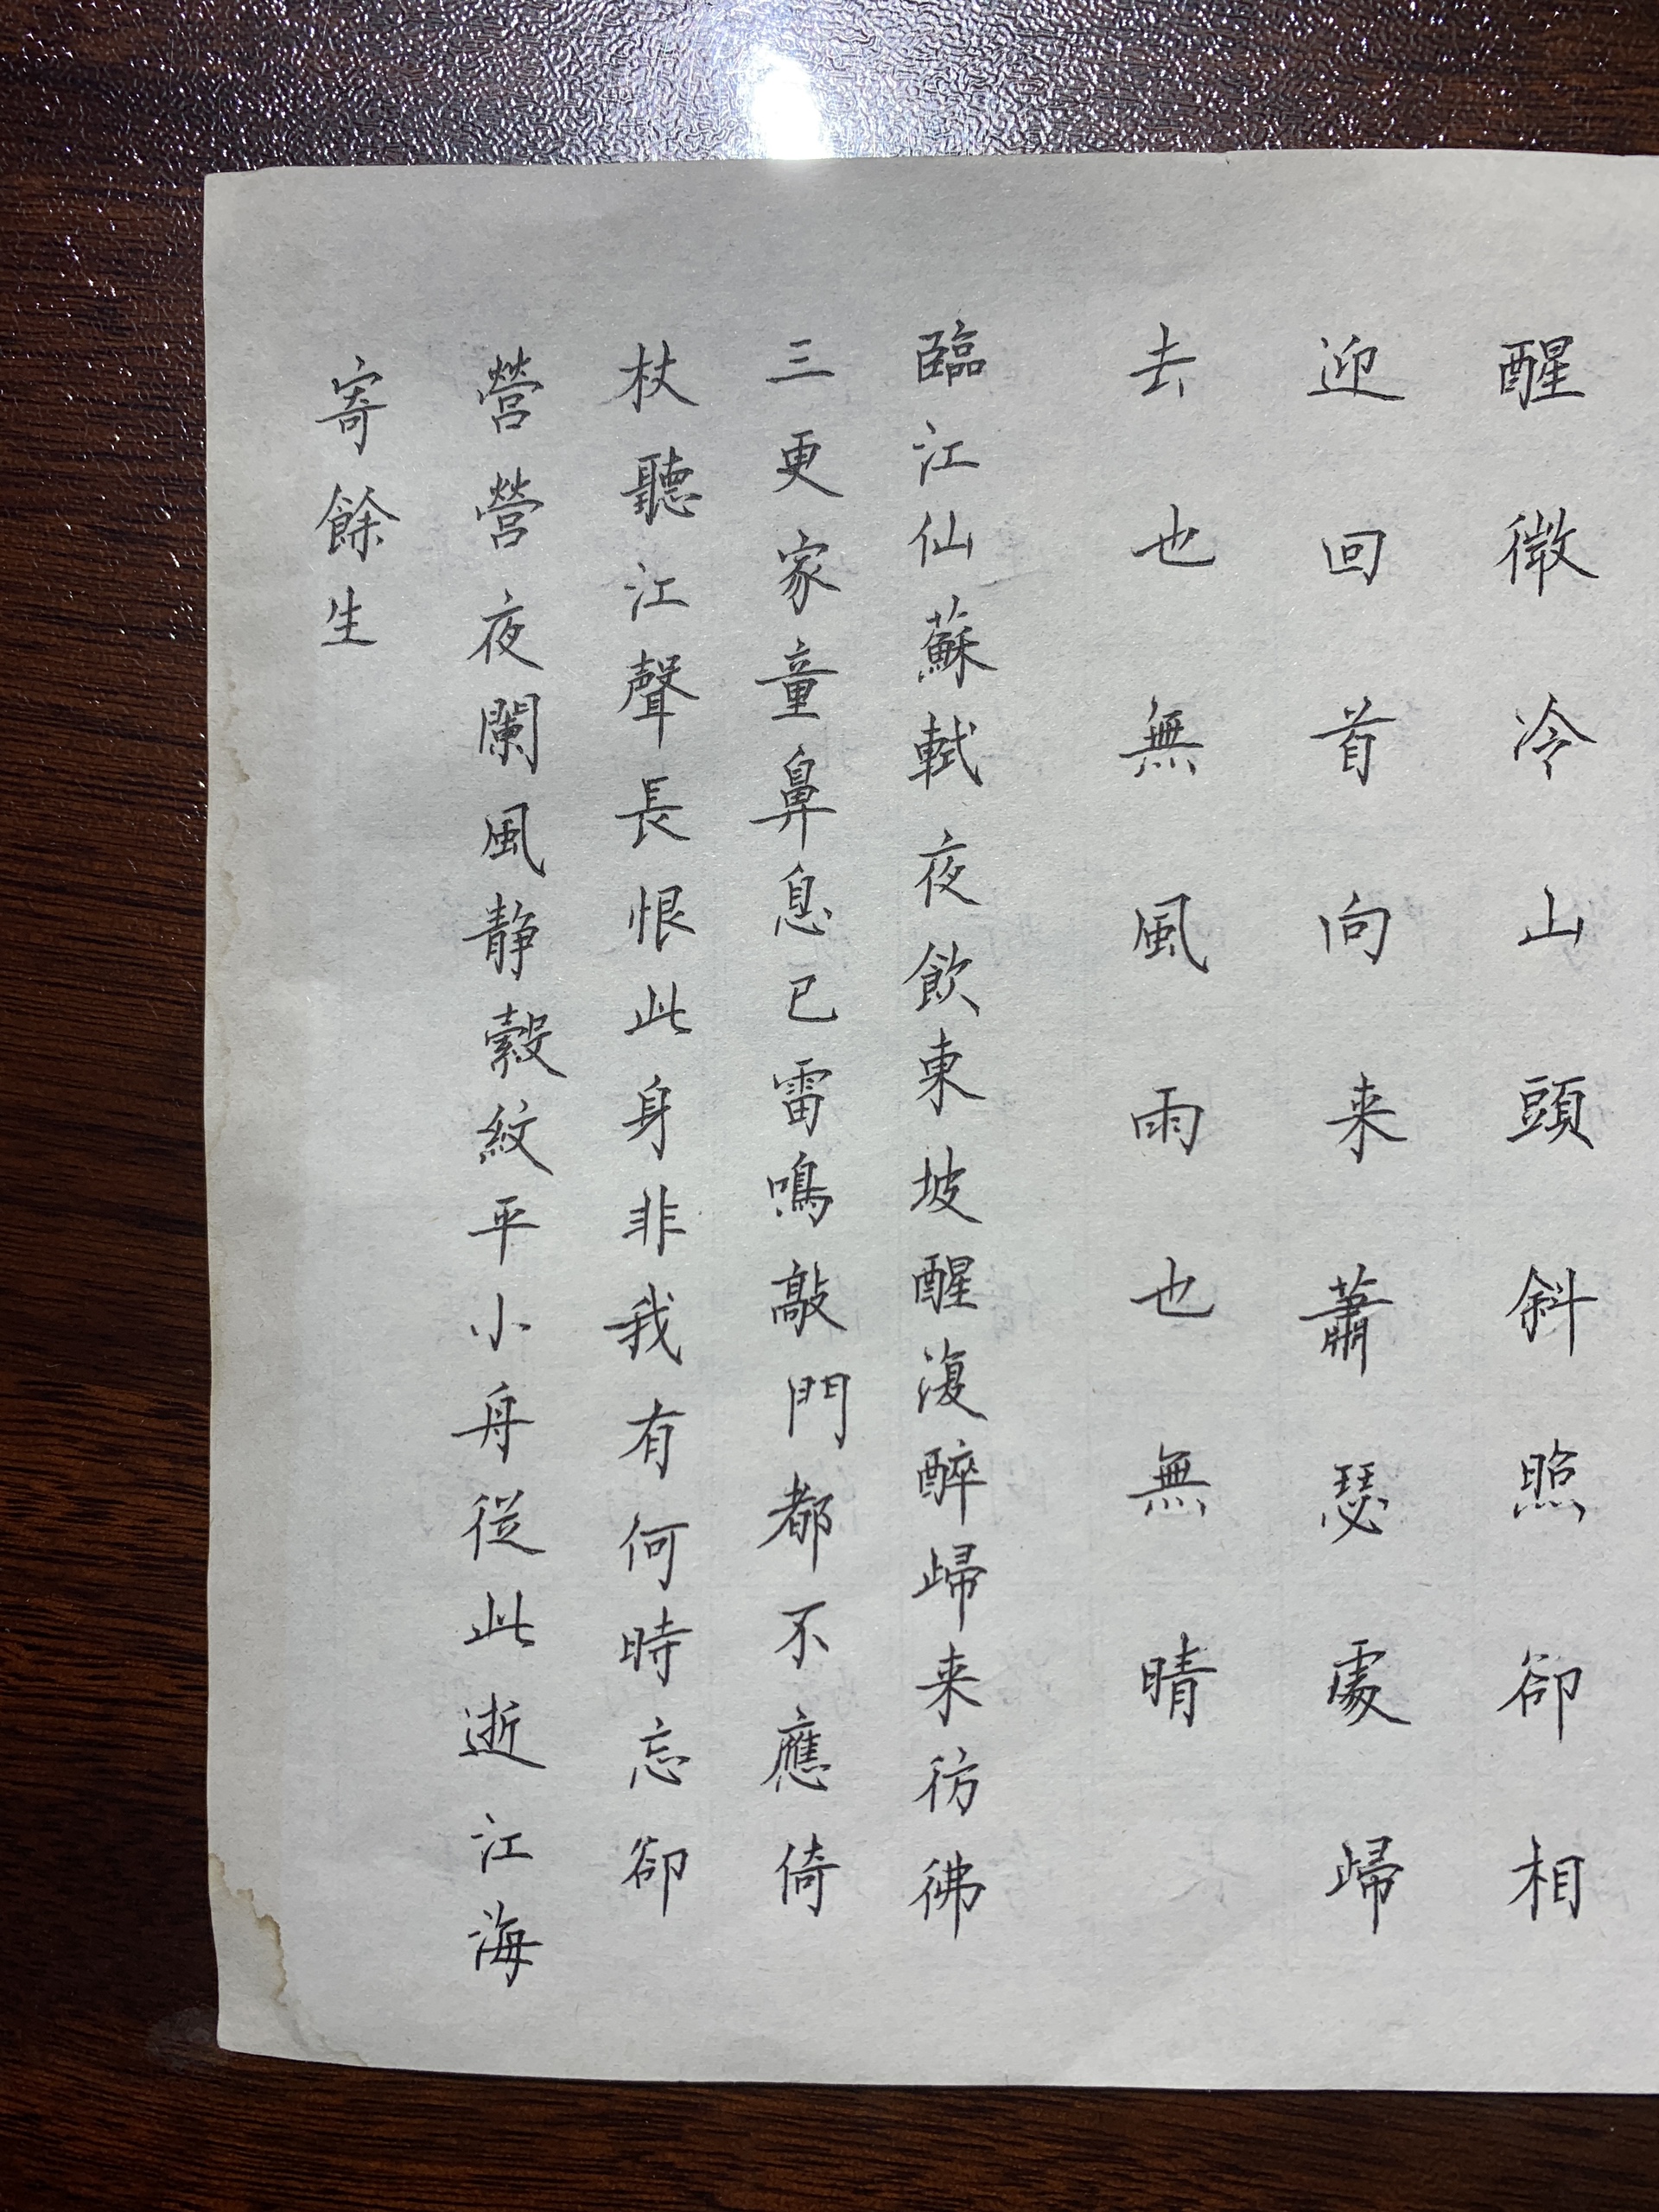 醒微冷山頭斜照卻相
迎回首向来蕭瑟處歸
去也無風雨也無晴
臨江仙蘇軾夜飲東坡醒復醉歸来彷彿
三更家童鼻息已雷鳴敲門都不應倚
杖聽江聲長恨此身非我有何時忘卻
營營夜闌風静縠紋平小舟從此逝江海
寄餘生